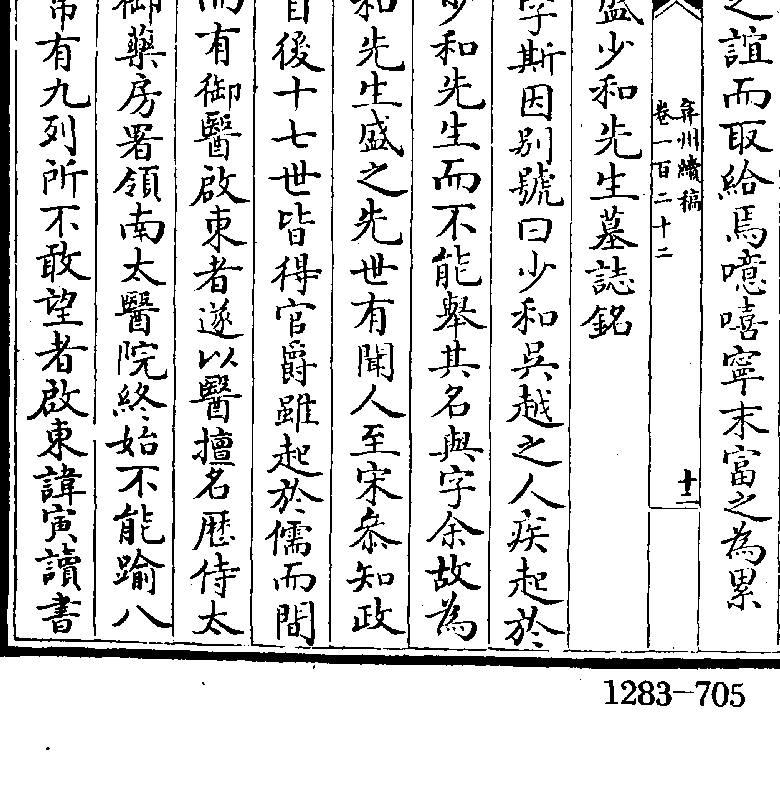 之誼而取給焉噫嘻寧末富之為累
弇州續稿
卷一百二十二
十二
盛少和先生墓誌銘
字斯因别號曰少和吳越之人疾起於
少和先生而不能舉其名與字余故為
和先生盛之先世有聞人至宋叅知政
自後十七世皆得官爵雖起於儒而間
而有御醫啟東者遂以醫擅名歴侍太
御藥房署領南太醫院終始不能踰八
帝有九列所不敢望者啟東諱寅讀書
1283-705